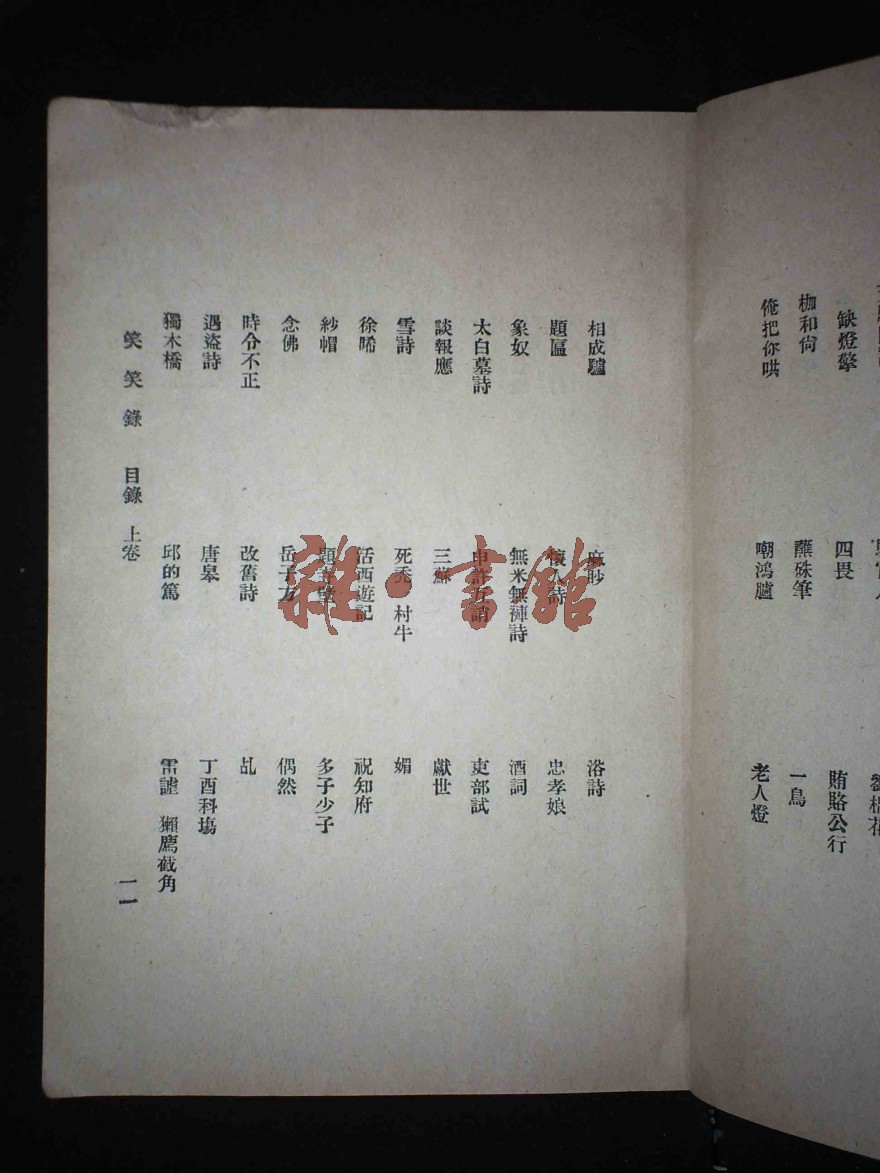 缺燈檠 四畏 賄賂公行
枷和尙 蘸硃筆 一鳥
俺把你哄 嘲鴻臚 老人燈
相成驢 麻眇 浴詩
題匾 懷人詩 忠孝娘
象奴 無米無褲詩 酒詞
太白墓詩 申許互誚 吏部試
談報應 三蘇 獻世
雪詩 死禿 村牛 媚
徐晞 活西遊記 祝知府
紗帽 題寺壁 多子少子
念佛 岳子方 偶然
時令不正 改舊詩 乩
遇盜詩 唐皋 丁酉科場
獨木橋 邱的篤 雷謔 獺鷹截角
笑笑錄 目錄 上卷 一一
雜·書館